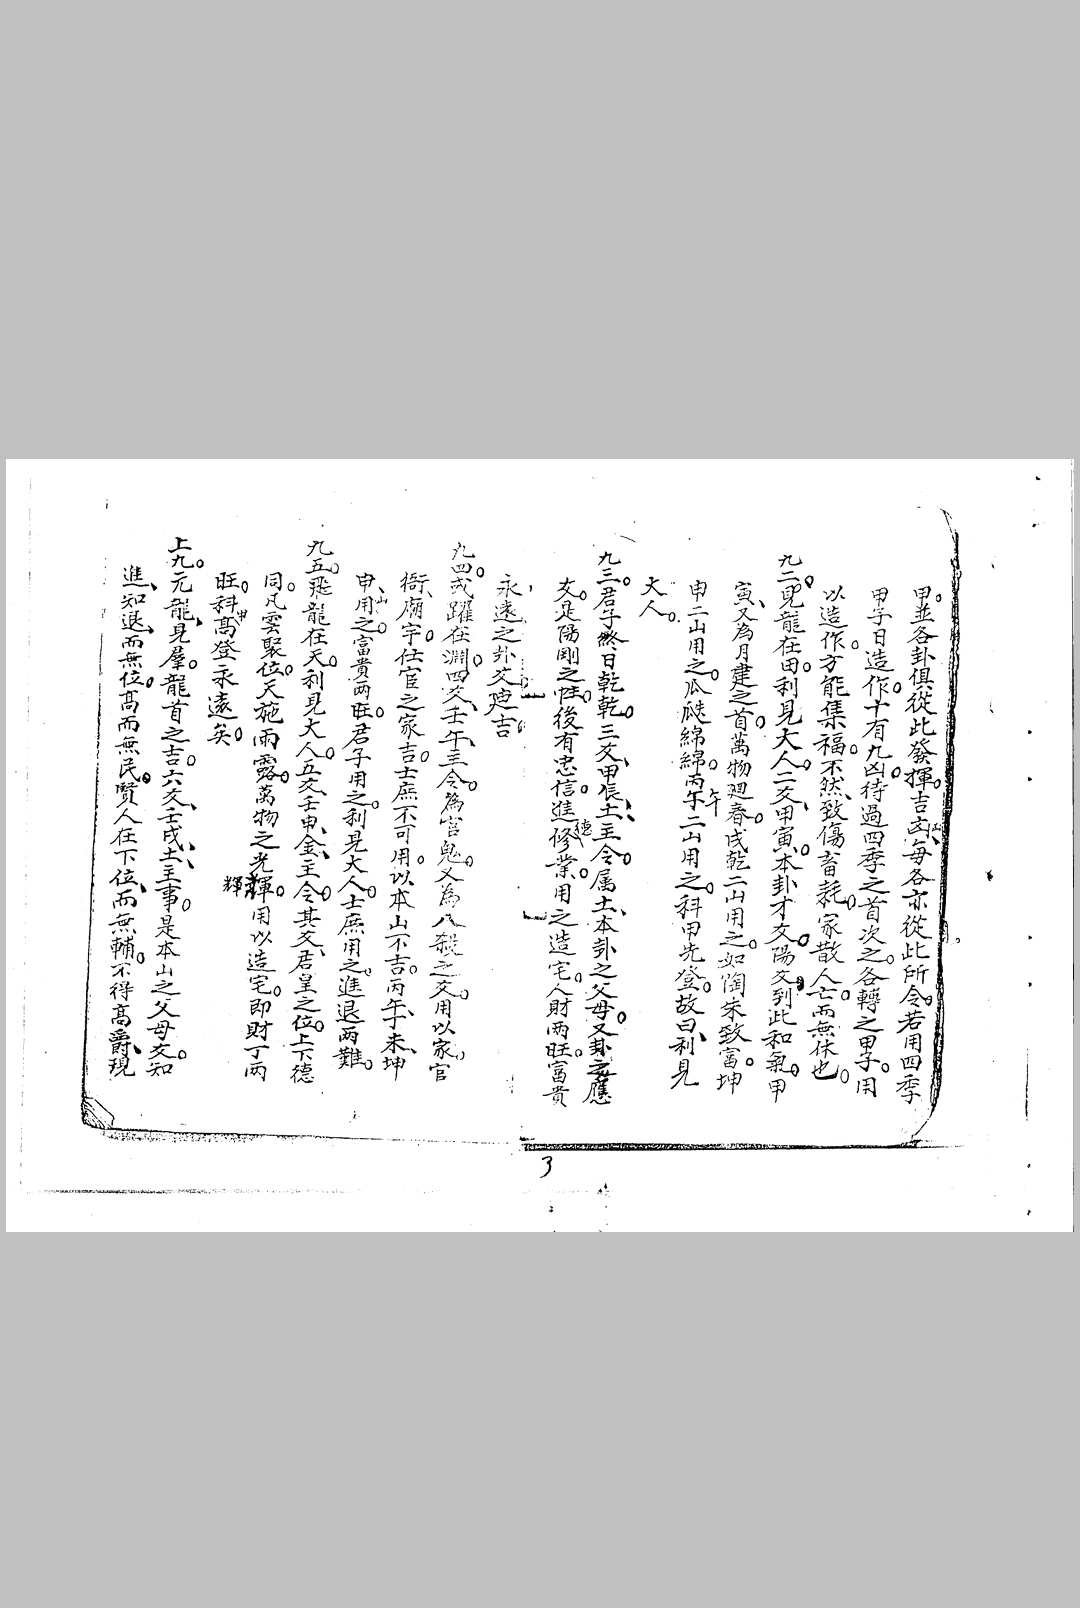 甲並各卦俱從此發揮。吉凶、每各亦從此所令。若用四季
甲子日造作。十有九凶。待過四季之首次之。各轉之甲子。用
以造作。方能集福。不然、致傷畜耗。家散人亡。而無休也。
九二。見龍在田。利見大人。二爻、甲寅。本卦才爻。陽爻。到此和氣。甲
寅、又為月建之首。萬物廻春。戌乾二山用之。如陶朱致富。坤
申二山用之。瓜瓞綿綿。丙午二山用之。科甲先登。故曰、利見
大人。
九三。君子終日乾乾。三爻、甲辰、土、主令。属土、本卦之父母。又卦之應
爻。是陽剛之性。後有忠信。進德修業。用之造宅。人財两旺。富貴
永遠之卦爻。廸吉。
九四。或躍在淵。四爻、壬午、主令。為官鬼。又為八殺之爻。用以家官
衙、廟宇。仕宦之家吉。士庶不可用。以本山不吉。丙午、未坤
申、山用之。富貴两旺。君子用之。利見大人。士庶用之。進退两難。
九五。飛龍在天。利見大人。五爻、壬申、金、主令。其爻、君皇之位。上下德
同。凡雲聚位。天施雨露。萬物之光輝。用以造宅。即財丁两
旺。科甲高登永遠矣。
上九。亢龍、見羣。龍首之吉。六爻、壬戌、土、主事。是本山之父母爻。知
進、知退、而無位。高而無民。賢人在下位、而無輔。不得高爵、現
3